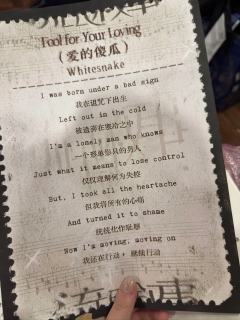 Fool for Your Loving
(爱的傻瓜)
Whitesnake
I was born under a bad sign
我在诅咒下出生
Left out in the cold
被遗弃在寒冷之中
I'm a lonely man who knows
一个形单影只的男人
Just what it means to lose control
仅仅理解何为失控
But, I took all the heartache
但我将所有的心痛
And turned it to shame
统统化作耻辱
Now I'm moving, moving on
我还在行动，继续行动